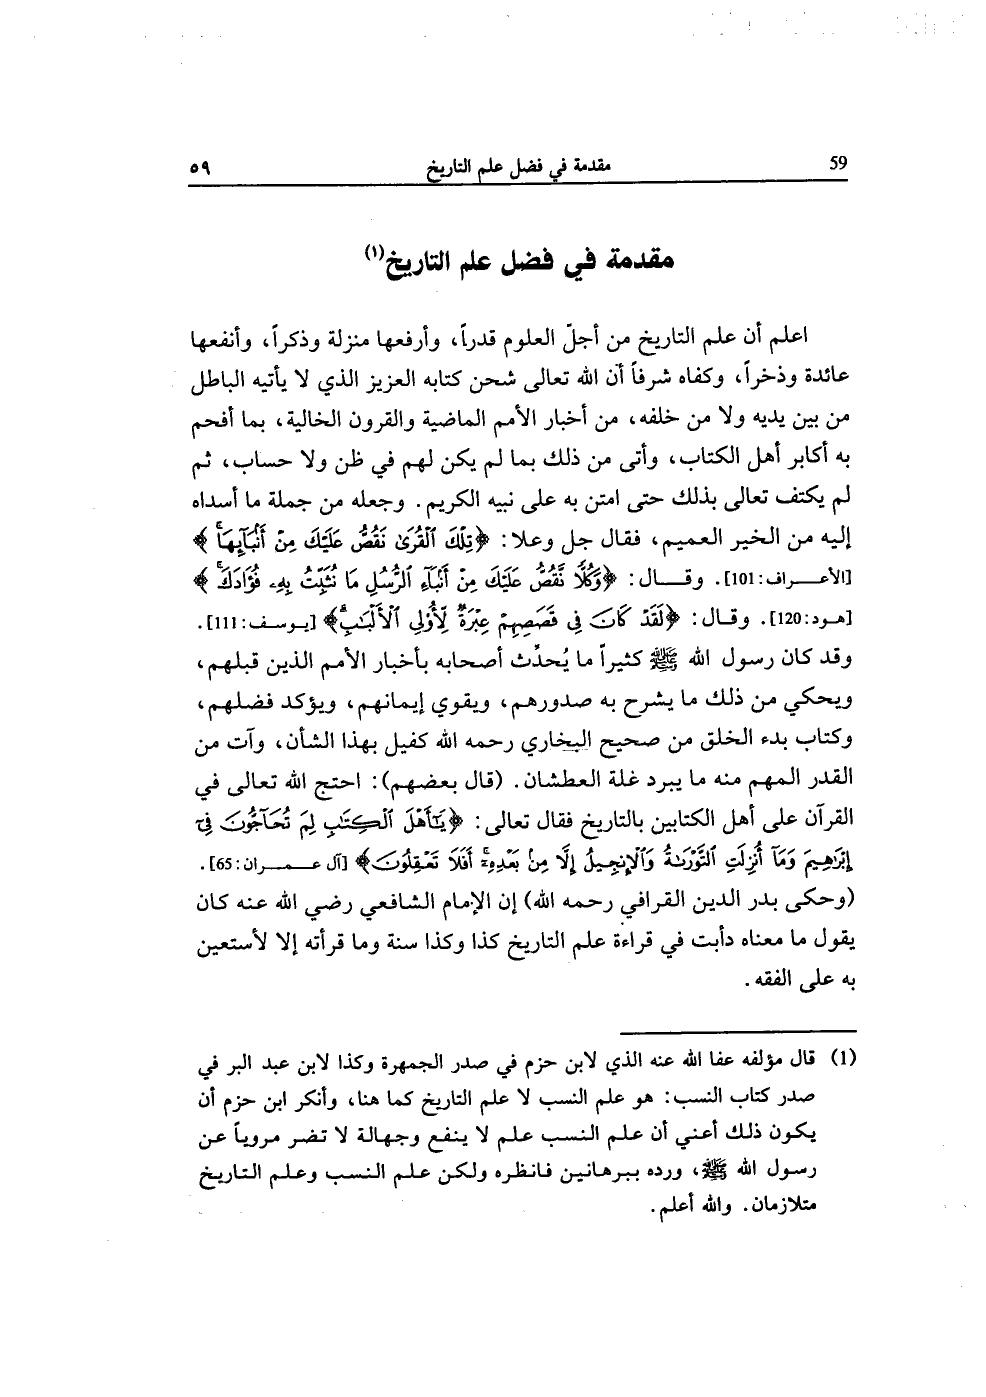 59 مقدمة في فضل علم التاريخ ٥٩
مقدمة في فضل علم التاريخ(١)
اعلم أن علم التاريخ من أجلّ العلوم قدراً، وأرفعها منزلة وذكراً، وأنفعها
عائدة وذخراً، وكفاه شرفاً أن الله تعالى شحن كتابه العزيز الذي لا يأتيه الباطل
من بين يديه ولا من خلفه، من أخبار الأمم الماضية والقرون الخالية، بما أفحم
به أكابر أهل الكتاب، وأتى من ذلك بما لم يكن لهم في ظن ولا حساب، ثم
لم يكتف تعالى بذلك حتى امتن به على نبيه الكريم. وجعله من جملة ما أسداه
إليه من الخير العميم، فقال جل وعلا: ﴿تِلْكَ ٱلْقُرَىٰ نَقُصُّ عَلَيْكَ مِنْ أَنۢبَآئِهَاۚ﴾
[الأعـــراف:101]. وقــــال: ﴿وَكُلًّا نَّقُصُّ عَلَيْكَ مِنْ أَنۢبَآءِ ٱلرُّسُلِ مَا نُثَبِّتُ بِهِۦ فُؤَادَكَۚ﴾
[هـود:120]. وقـال: ﴿لَقَدْ كَانَ فِى قَصَصِهِمْ عِبْرَةٌ لِّأُو۟لِى ٱلْأَلْبَٰبِۗ﴾ [يـوسـف:111].
وقد كان رسول الله ﷺ كثيراً ما يُحدِّث أصحابه بأخبار الأمم الذين قبلهم،
ويحكي من ذلك ما يشرح به صدورهم، ويقوي إيمانهم، ويؤكد فضلهم،
وكتاب بدء الخلق من صحيح البخاري رحمه الله كفيل بهذا الشأن، وآت من
القدر المهم منه ما يبرد غلة العطشان. (قال بعضهم): احتج الله تعالى في
القرآن على أهل الكتابين بالتاريخ فقال تعالى: ﴿يَٰٓأَهْلَ ٱلْكِتَٰبِ لِمَ تُحَآجُّونَ فِىٓ
إِبْرَٰهِيمَ وَمَآ أُنزِلَتِ ٱلتَّوْرَىٰةُ وَٱلْإِنجِيلُ إِلَّا مِنۢ بَعْدِهِۦٓۚ أَفَلَا تَعْقِلُونَ﴾ [آل عـــمـــران:65].
(وحكى بدر الدين القرافي رحمه الله) إن الإمام الشافعي رضي الله عنه كان
يقول ما معناه دأبت في قراءة علم التاريخ كذا وكذا سنة وما قرأته إلا لأستعين
به على الفقه.
(1) قال مؤلفه عفا الله عنه الذي لابن حزم في صدر الجمهرة وكذا لابن عبد البر في
صدر كتاب النسب: هو علم النسب لا علم التاريخ كما هنا، وأنكر ابن حزم أن
يكون ذلك أعني أن علم النسب علم لا ينفع وجهالة لا تضر مروياً عن
رسول الله ﷺ، ورده ببرهانين فانظره ولكن علم النسب وعلم التاريخ
متلازمان. والله أعلم.